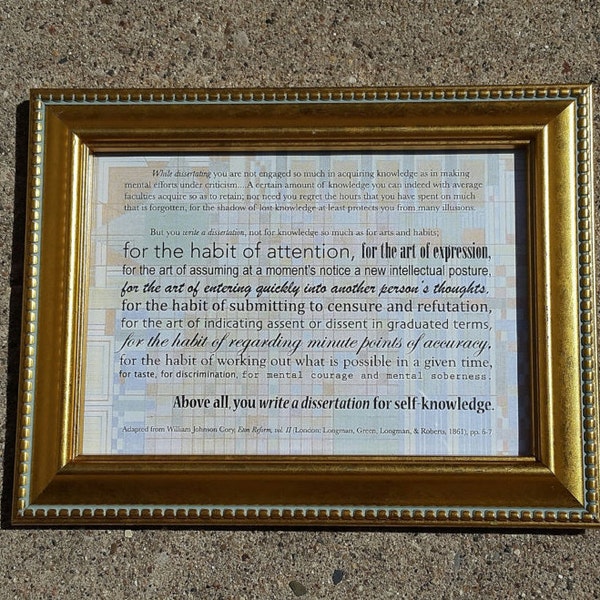 While dissertating you are not engaged so much in acquiring knowledge as in making
mental efforts under criticism.... A certain amount of knowledge you can indeed with average
faculties acquire so as to retain; nor need you regret the hours that you have spent on much
that is forgotten, for the shadow of lost knowledge at least protects you from many illusions.
But you write a dissertation, not for knowledge so much as for arts and habits;
for the habit of attention, for the art of expression,
for the art of assuming at a moment's notice a new intellectual posture,
for the art of entering quickly into another person's thoughts,
for the habit of submitting to censure and refutation,
for the art of indicating assent or dissent in graduated terms,
for the habit of regarding minute points of accuracy,
for the habit of working out what is possible in a given time,
for taste, for discrimination, for mental courage and mental soberness.
Above all, you write a dissertation for self-knowledge.
Adapted from William Johnson Cory, Eton Reform, vol. II (London: Longman, Green, Longman, & Roberts, 1861), pp. 6-7